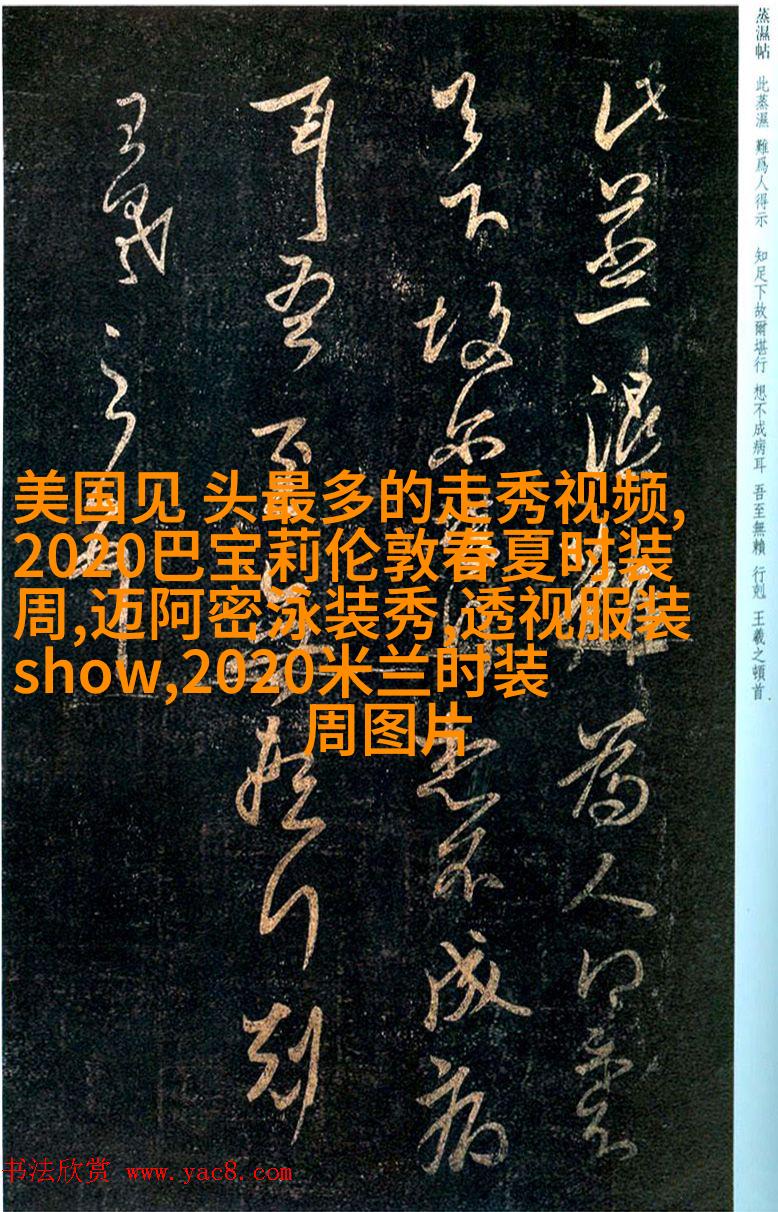 蒸濕帖 此蒸濕 難爲人得示 知足下故爾堪行 想不成病耳 吾至無賴 行剋 王羲之頓首
此蒸濕難為人得示知
足下故爾堪行想不成病
耳吾至無賴行剋
王羲之頓首
美国见 头最多的走秀视频,
2020巴宝莉伦敦春夏时装
周,迈阿密泳装秀,透视服装
show,2020米兰时装
周图片
书法欣赏 www.yac8.com